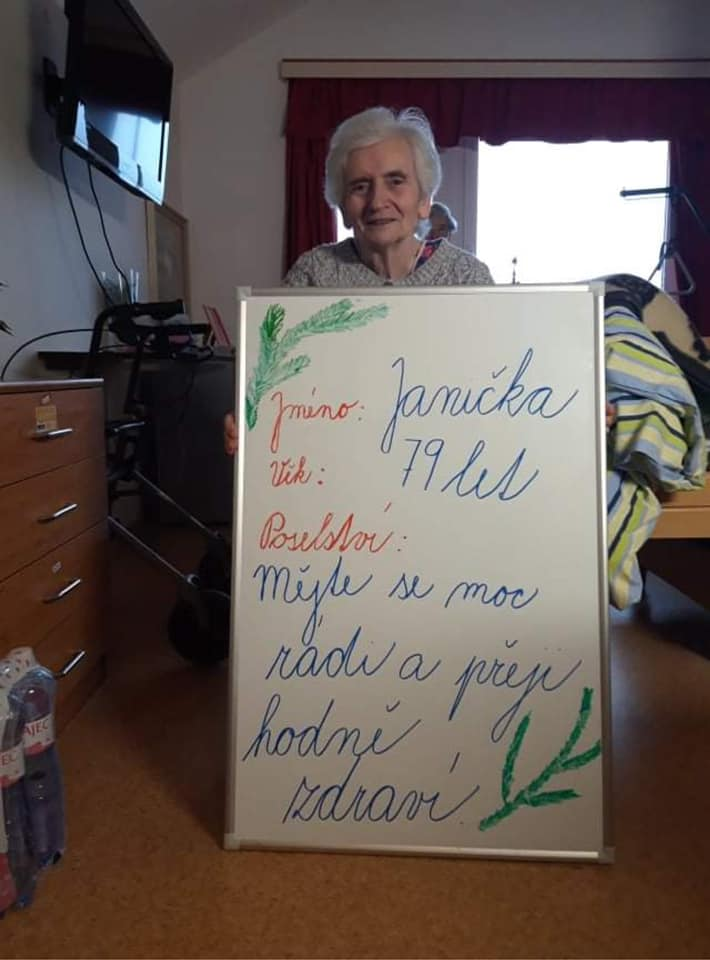 Jméno: Janička
Věk: 79 let
Poselství:
Mějte se moc
rádi a přeji
hodně
zdraví!